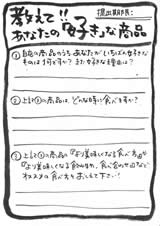 教えて!! 提出期限:
あなたの「好き」な商品
① 自店の商品のうち あなたが いちばん好きな
ものは何ですか? また好きな理由は?
② 上記①の商品は、どんな時に食べますか?
③ 上記①の商品の『より美味しくなる食べ方』や
『より美味しくなる飲み物、食べ合わせ』など
オススメの食べ方をおしえて下さい!